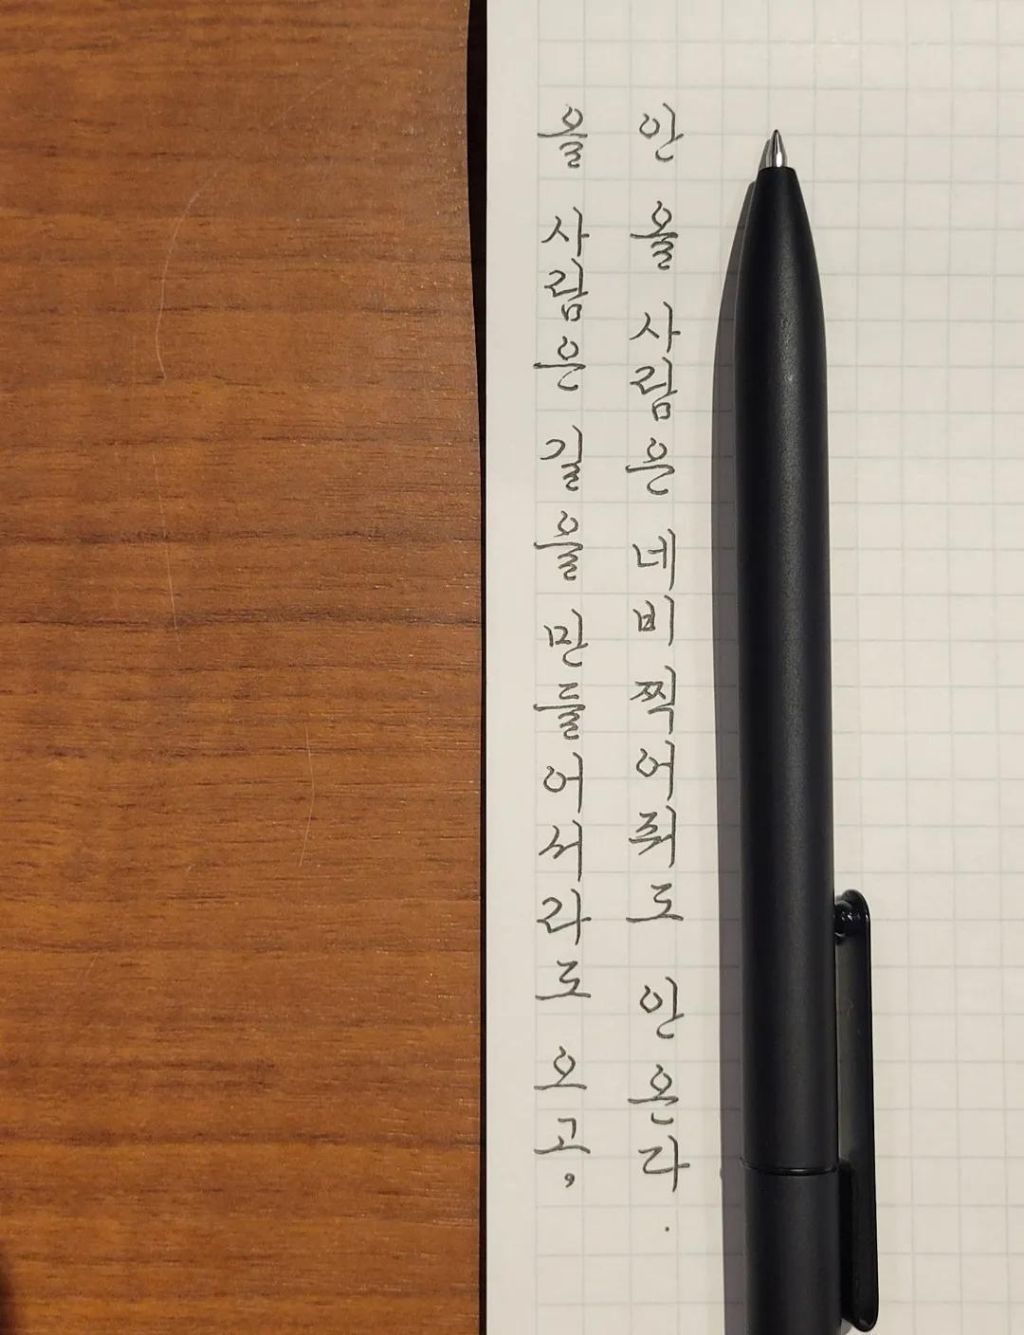 올 사람은 길을 만들어서라도 오고,
안 올 사람은 네비 찍어줘도 안 온다.